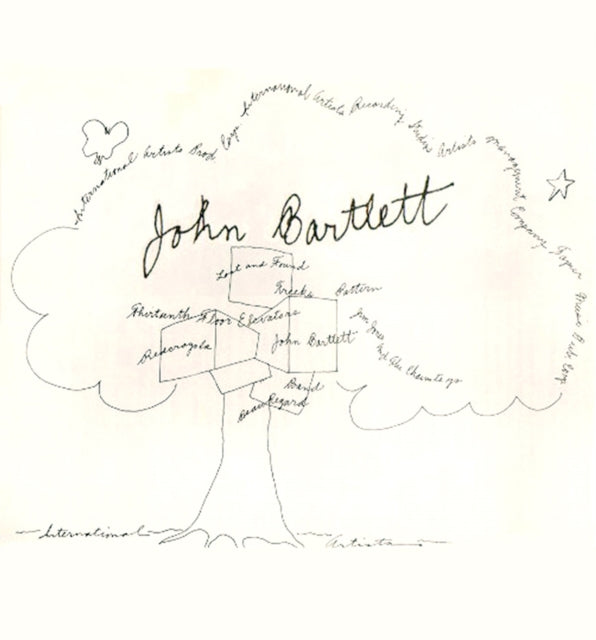 International Artists Prod Corp. International Artists Recording Studios Artists Management Company Tapier Music Pub. Corp
John Bartlett
Lost and Found
Freeks Pattern
Thirteenth Floor Elevators
Rederayola
John Bartlett
Jim Jones And the Chaintops
Band
BeauRegard
International Artists